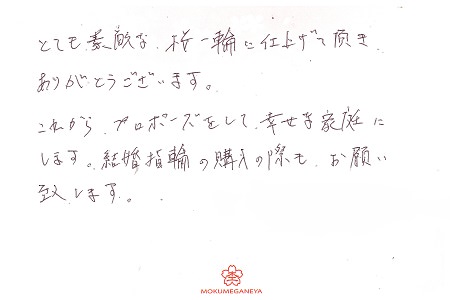 とても素敵な、桜一輪に仕上げて頂き
ありがとうございます。
これから、プロポーズをして、幸せな家庭に
します。結婚指輪の購入の際も、お願い
致します。
MOKUMEGANEYA